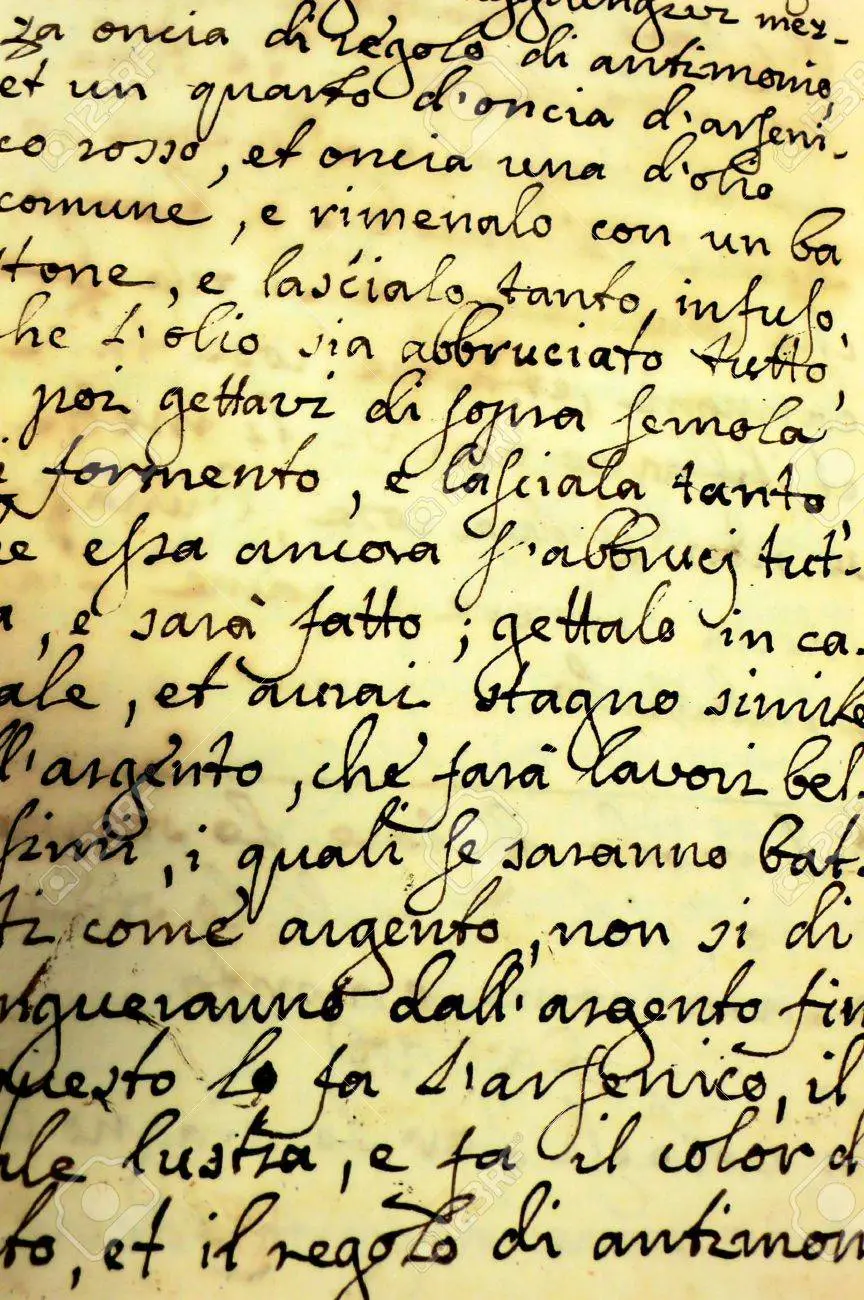 mez-
za oncia di regolo di antimonio,
et un quarto d'oncia d'arseni-
co rosso, et oncia una d'olio
comune, e rimenalo con un ba
ttone, e lascialo tanto infuso,
he l'olio sia abbruciato tutto,
poi gettavi di sopra semola
i formento, e lasciala tanto
e essa ancora s'abbruci tut-
a, e sarà fatto; gettalo in ca-
ale, et aurai stagno simile
ll'argento, che farà lavori bel-
ssimi, i quali se saranno bat-
ti come argento, non si di
ngueranno dall'argento fin
questo lo fa l'arsenico, il
ale lustra, e fa il color d
to, et il regolo di antimon